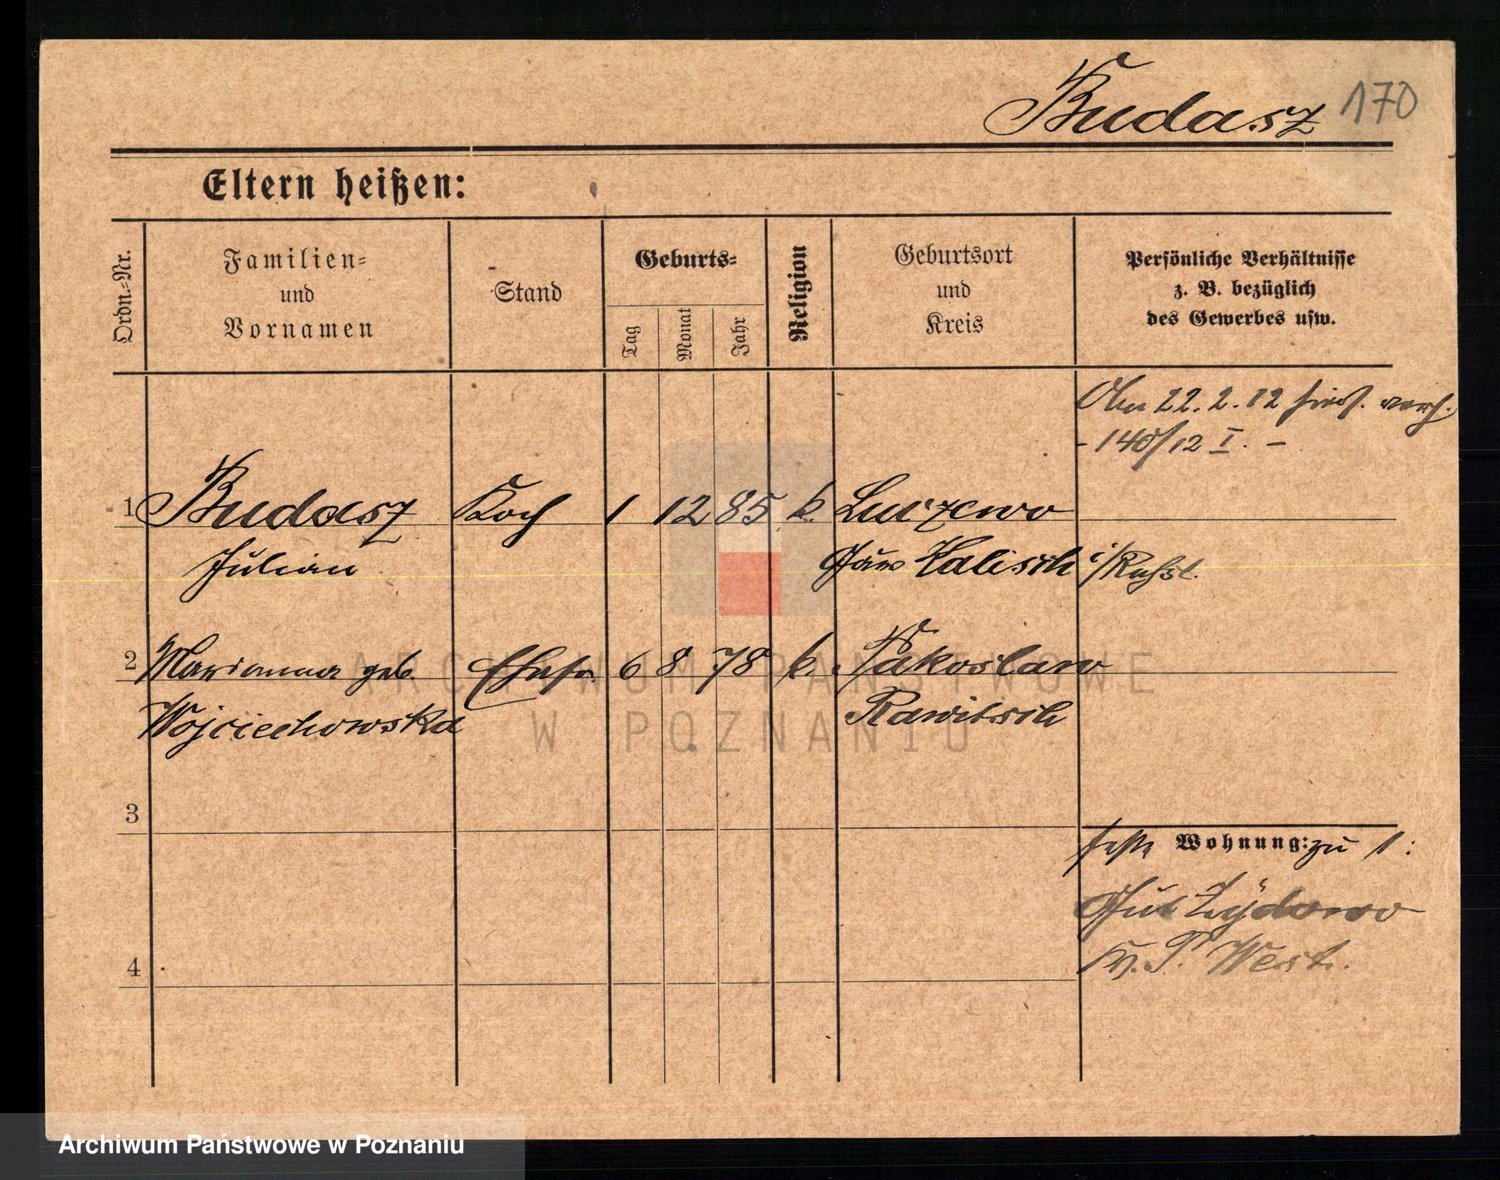 Budasz 170
Eltern heißen:
Ordn.-Nr.
Familien- und Vornamen
Stand
Geburts-
Tag
Monat
Jahr
Religion
Geburtsort und Kreis
Persönliche Verhältnisse
z. B. bezüglich
des Gewerbes usw.
22.2.12
- 140/12 I. -
1 Budasz Koch 1 12 85 k. Luczewo
Julian Gouv Kalisch i/Russl.
2 Marianna geb. Ehefr. 6 8 78 k. Pakoslaw
Wojciechowska Rawitsch
3
Wohnung: zu 1:
Gut Zydowo
Kr. P. West.
4
ARCHIWUM PAŃSTWOWE
W POZNANIU
Archiwum Państwowe w Poznaniu